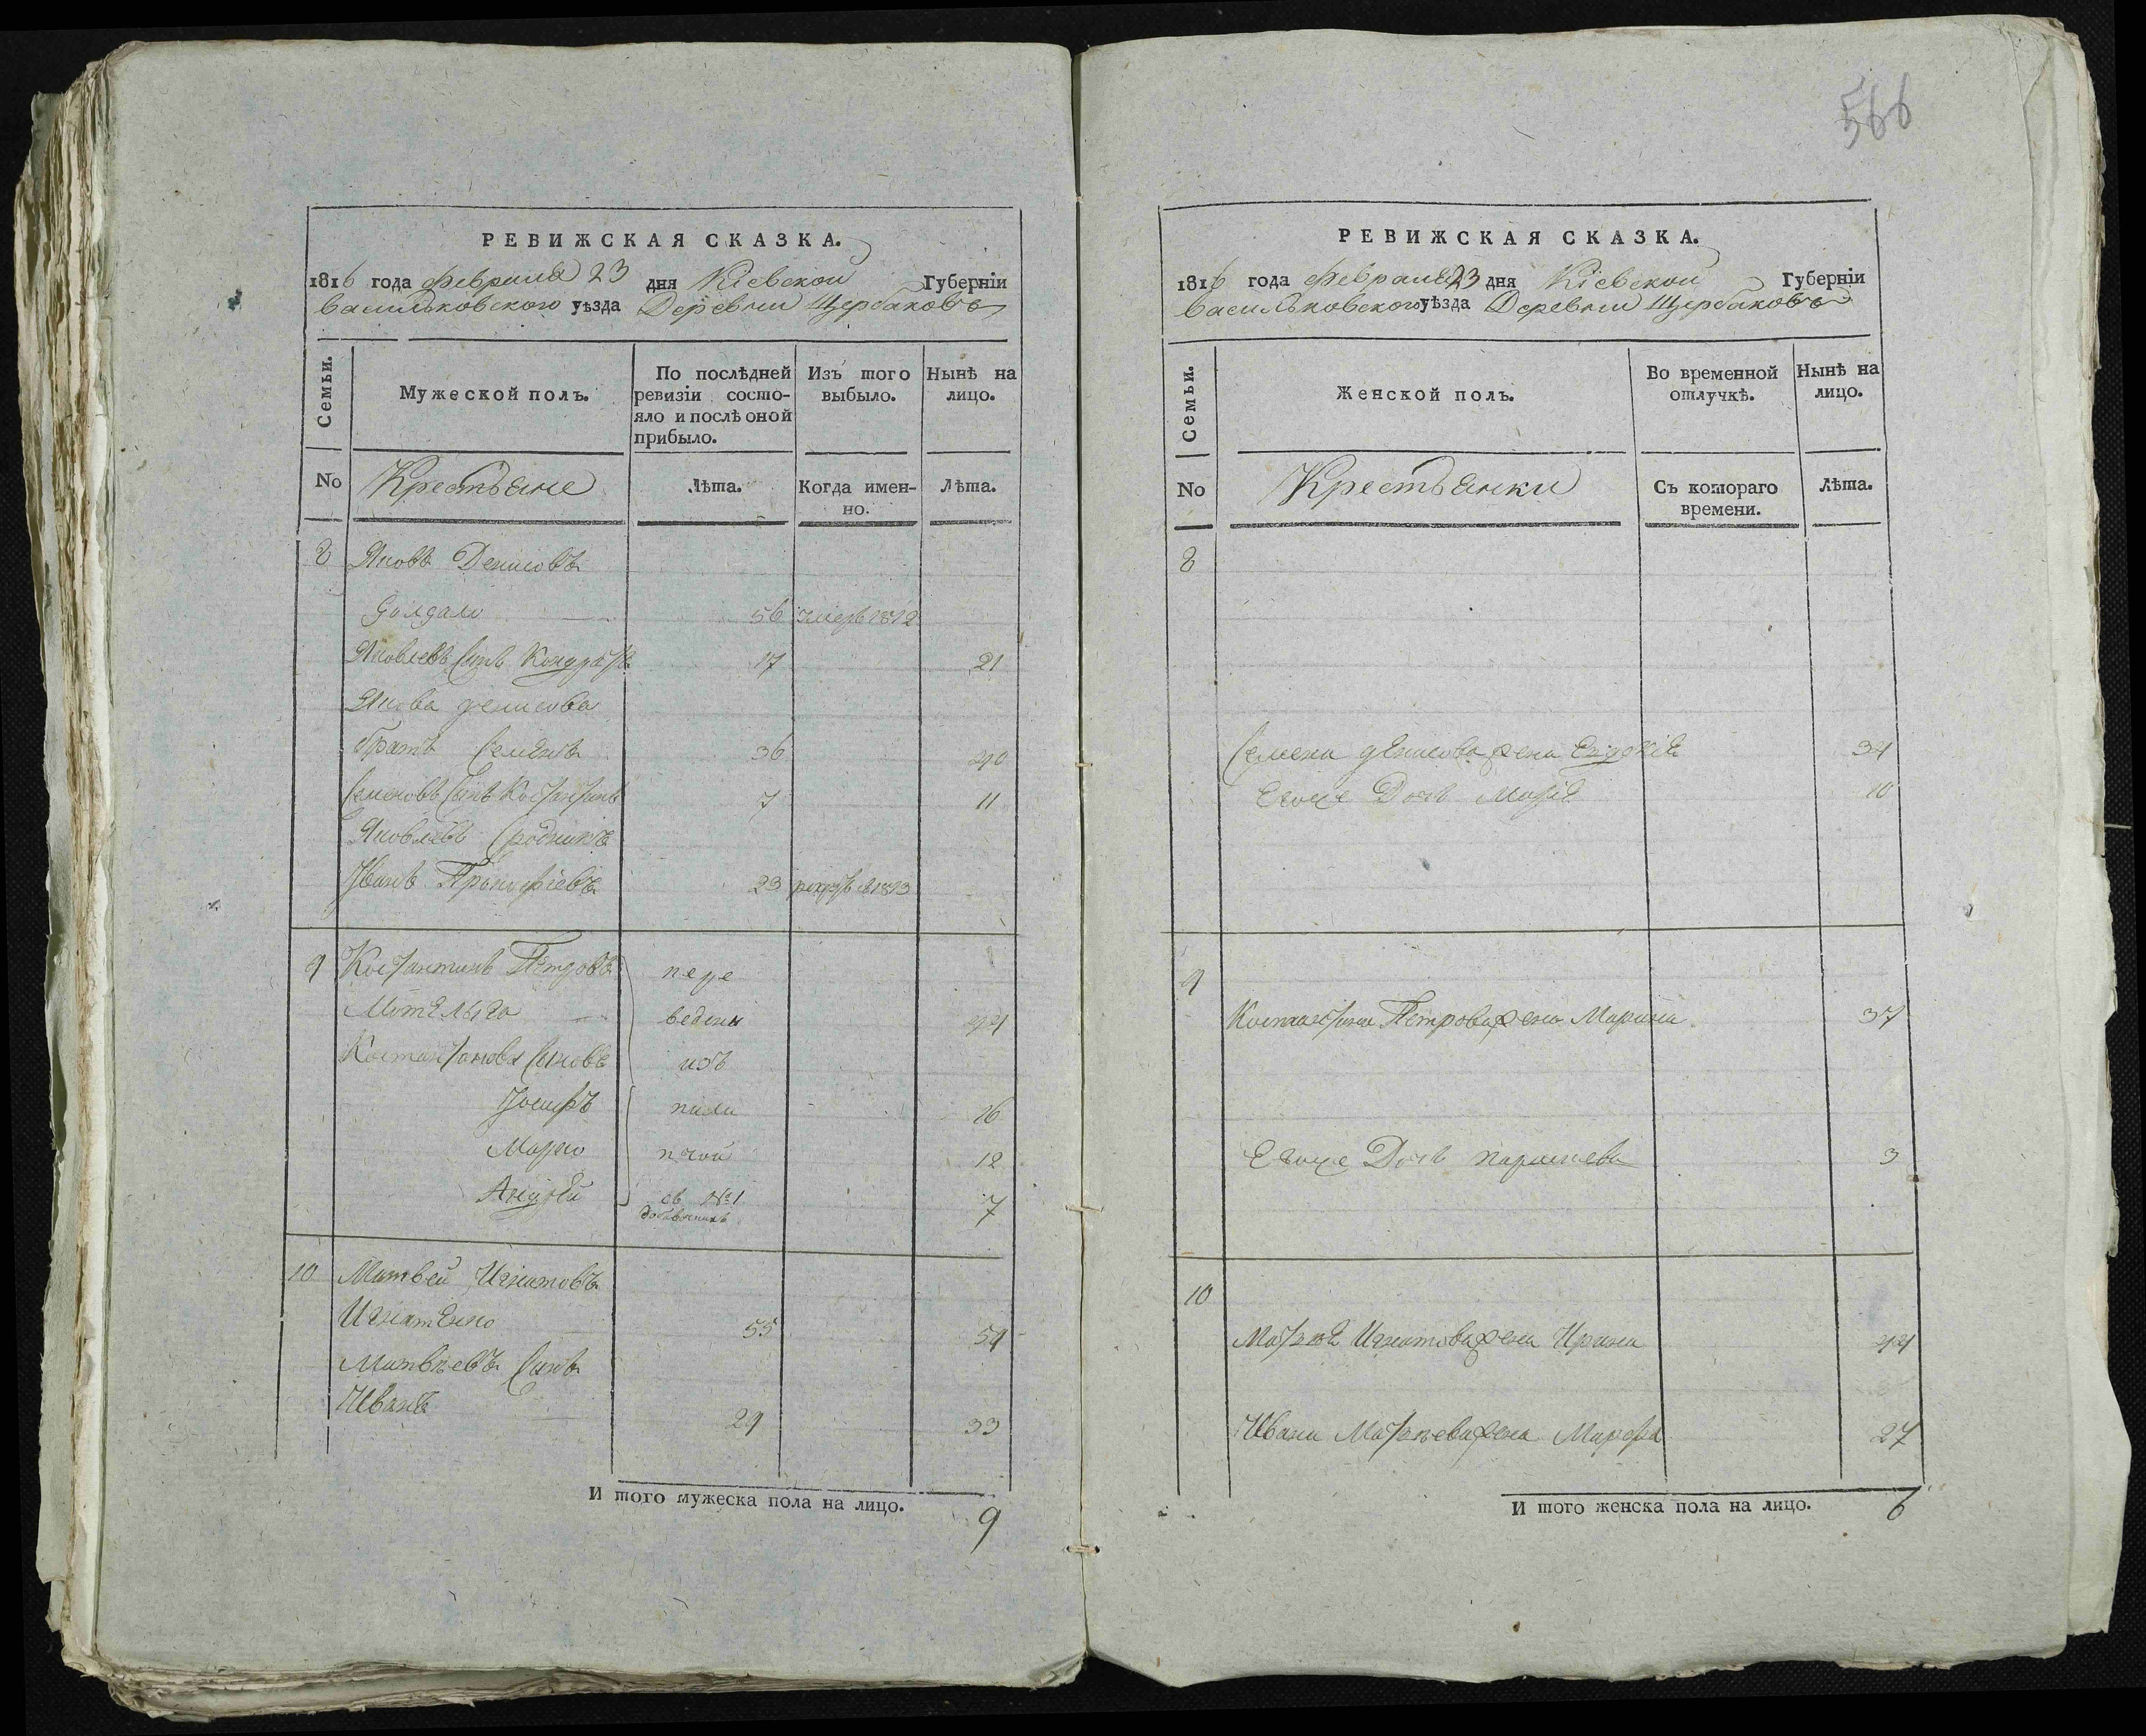 566
РЕВИЖСКАЯ СКАЗКА.
1816 года Февраля 23 дня Кіевской Губерніи
Васильковского уѣзда Деревни Щербаковъ
Семьи.
Мужеской полъ.
По послѣдней ревизіи состояло и послѣ оной прибыло.
Изъ того выбыло.
Нынѣ на лицо.
No
Крестьяне
Лѣта.
Когда именно.
Лѣта.
8 Яковъ Денисовъ
56 умеръ 1812
Яковлевъ сынъ Кондратъ 17 21
Якова денисова
братъ Семенъ 36 40
Семеновъ сынъ Костантинъ 7 11
Яковлевъ сродникъ
Иванъ Прокофіевъ 23 рекрутъ в 1813
9 Костантинъ Петровъ пере
44
ведены
Костантинова сыновъ изъ
Іосифъ 16
Марко 12
Андрей съ №1 7
10 Матвей Игнатовъ
Игнатенко 55 59
Матвѣевъ сынъ
Иванъ 29 33
И того мужеска пола на лицо. 9
РЕВИЖСКАЯ СКАЗКА.
1816 года Февраля 23 дня Кіевской Губерніи
Васильковского уѣзда Деревни Щербаковъ
Семьи.
Женской полъ.
Во временной отлучкѣ.
Нынѣ на лицо.
No
Крестьянки
Съ котораго времени.
Лѣта.
8
Семена денисова жена Евдокія 34
Егоже Дочь Марія 10
9
Костантина Петрова жена Марина 37
Егоже Дочь параскева 3
10
Матвея Игнатова жена Ирина 44
Ивана Матвѣева жена Марфа 27
И того женска пола на лицо. 6